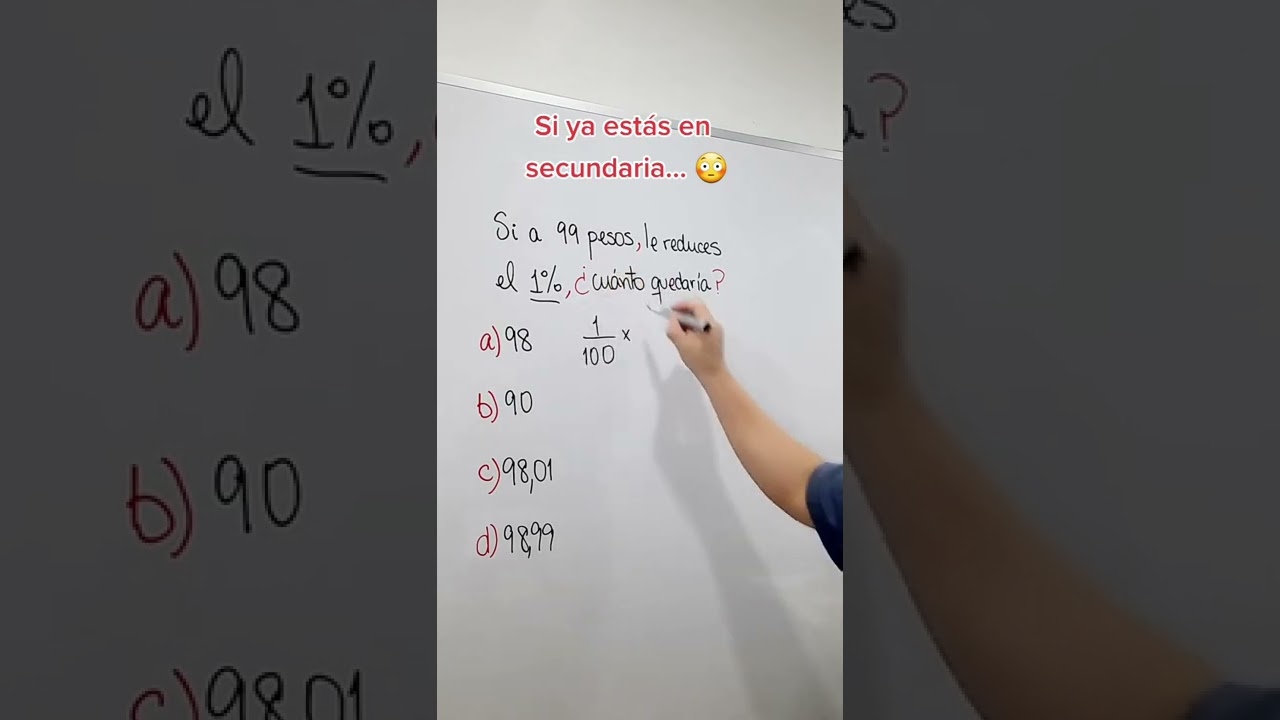 Si ya estás en
secundaria... 😳
Si a 99 pesos, le reduces
el 1%, ¿cuánto quedaría?
a) 98
1/100 ×
b) 90
c) 98,01
d) 98,99
el 1%,
a) 98
b) 90
c) 98,01
?